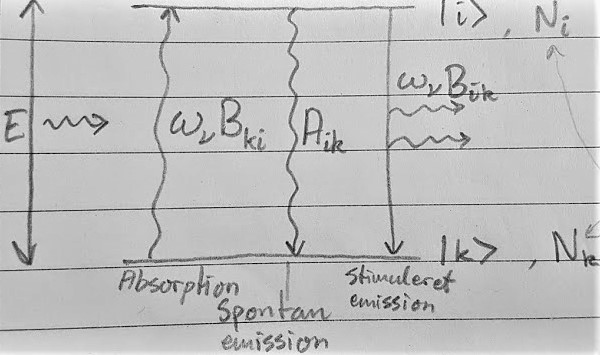 |i> , Nᵢ
E ω_νB_ki A_ik ω_νB_ik
|k> , N_k
Absorption
Spontan
emission
Stimuleret
emission